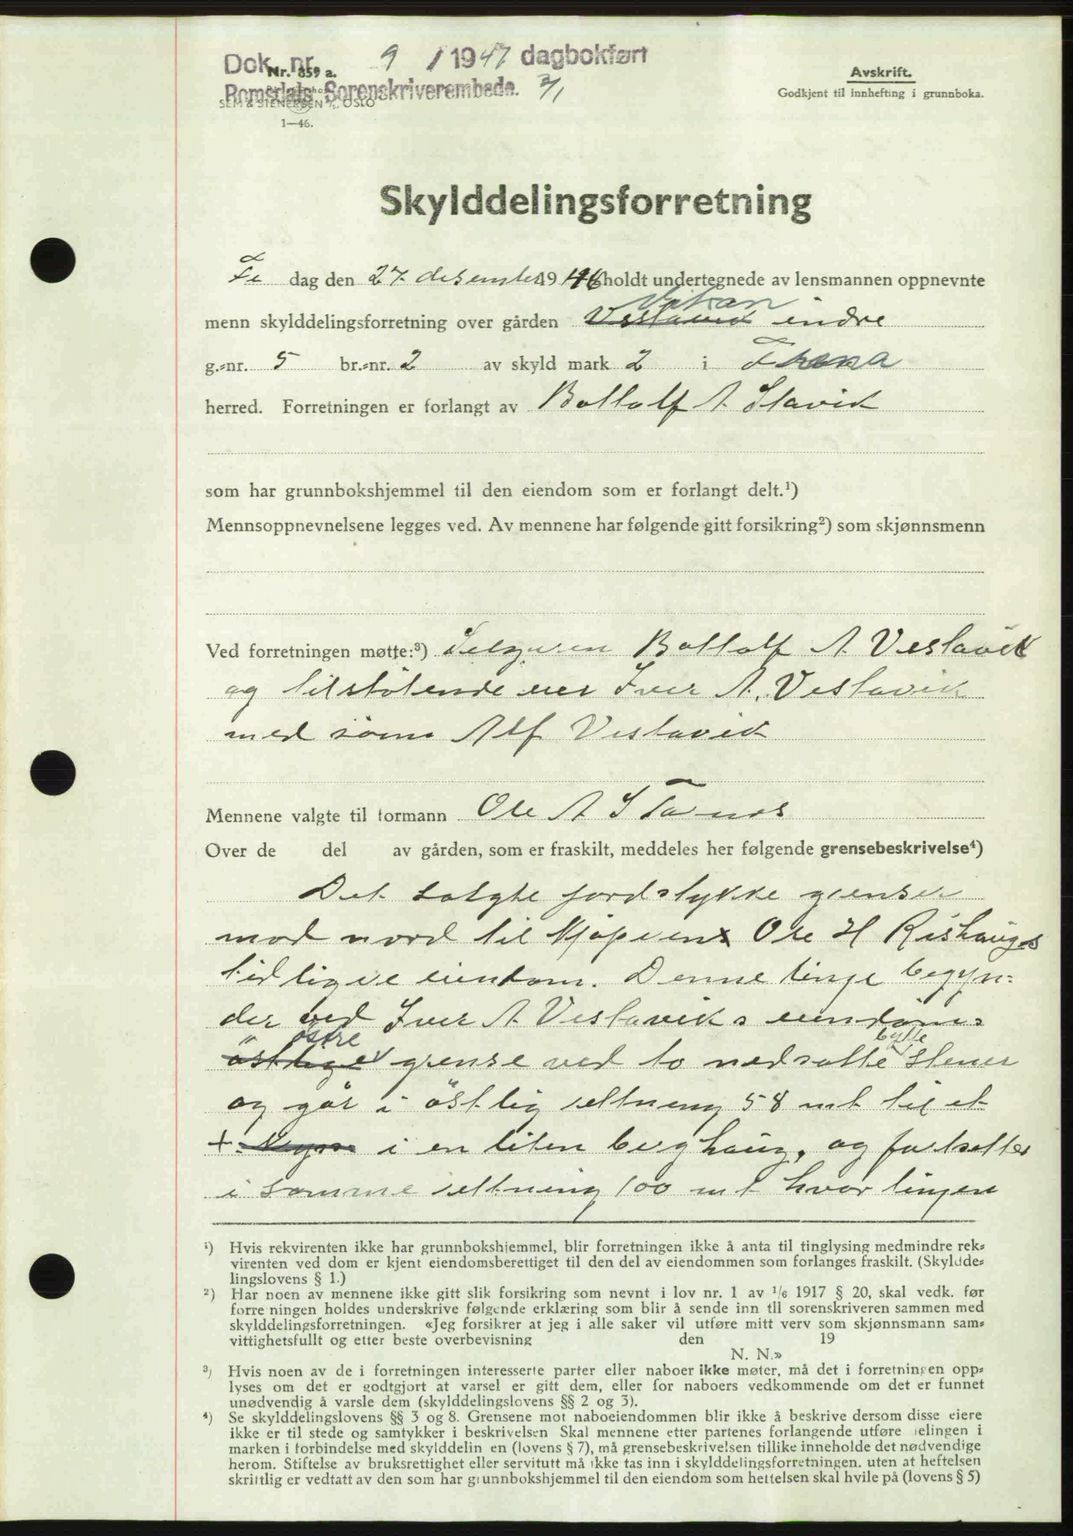 Dok. nr. 9 / 1947 dagbokført
Nr. 859 a.
Romsdals Sorenskriverembede. 3/1
SEM & STENERSEN A/S, OSLO
1—46.
Avskrift.
Godkjent til innhefting i grunnboka.
Skylddelingsforretning
Fre dag den 27 desember 1946 holdt undertegnede av lensmannen oppnevnte
menn skylddelingsforretning over gården Vestavik indre
g.-nr. 5 br.-nr. 2 av skyld mark 2 i Fræna
herred. Forretningen er forlangt av Bottolf A. Stavik
som har grunnbokshjemmel til den eiendom som er forlangt delt.¹)
Mennsoppnevnelsene legges ved. Av mennene har følgende gitt forsikring²) som skjønnsmenn
Ved forretningen møtte:³) Selgeren Bottolf A Vestavik
og tilstøtende eier Iver A. Vestavik
med sønn Alf Vestavik
Mennene valgte til formann Ole A
Over de del av gården, som er fraskilt, meddeles her følgende grensebeskrivelse⁴)
Det solgte jordstykke grenser
mod nord til kjøperens Ole H Rishaugs
tidligere eiendom. Denne linje begyn-
der ved Iver A Vestaviks eiendoms
östlige östre grense ved to nedsatte bytte stener
og går i östlig retning 58 mt til et
+ i en liten berghaug, og fortsetter
i samme retning 100 mt hvor linjen
¹) Hvis rekvirenten ikke har grunnbokshjemmel, blir forretningen ikke å anta til tinglysing medmindre rek-
virenten ved dom er kjent eiendomsberettiget til den del av eiendommen som forlanges fraskilt. (Skyldde-
lingslovens § 1.)
²) Har noen av mennene ikke gitt slik forsikring som nevnt i lov nr. 1 av 1/6 1917 § 20, skal vedk. før
forretningen holdes underskrive følgende erklæring som blir å sende inn til sorenskriveren sammen med
skylddelingsforretningen. «Jeg forsikrer at jeg i alle saker vil utføre mitt verv som skjønnsmann sam-
vittighetsfullt og etter beste overbevisning den 19
N. N.»
³) Hvis noen av de i forretningen interesserte parter eller naboer ikke møter, må det i forretningen opp-
lyses om det er godtgjort at varsel er gitt dem, eller for naboers vedkommende om det er funnet
unødvendig å varsle dem (skylddelingslovens §§ 2 og 3).
⁴) Se skylddelingslovens §§ 3 og 8. Grensene mot naboeiendommen blir ikke å beskrive dersom disse eiere
ikke er til stede og samtykker i beskrivelsen Skal mennene etter partenes forlangende utføre delingen i
marken i forbindelse med skylddelingen (lovens § 7), må grensebeskrivelsen tillike inneholde det nødvendige
herom. Stiftelse av bruksrettighet eller servitutt må ikke tas inn i skylddelingsforretningen. uten at heftelsen
skriftlig er vedtatt av den som har grunnbokshjemmel til den eiendom som heftelsen skal hvile på (lovens § 5)